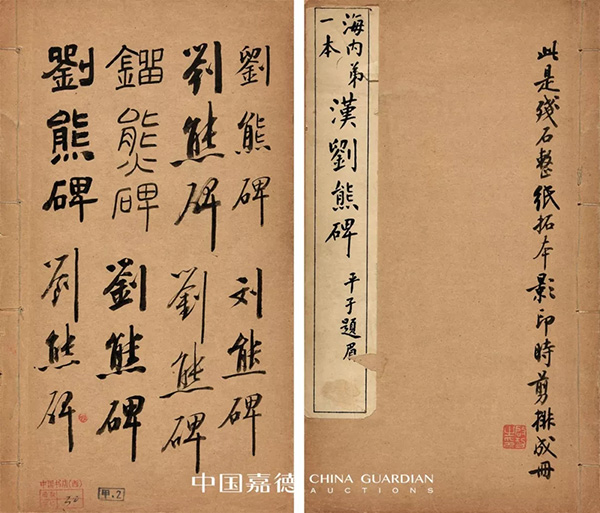 劉熊碑
劉熊碑
鎦熊碑
劉熊碑
刘熊碑
劉熊碑
劉熊碑
劉熊碑
中国书店(西)
甲.2
此是殘石整紙拓本影印時剪排成冊
海内弟
一本
漢劉熊碑
平子題眉
中国嘉德
CHINA GUARDIAN
AUCTIONS